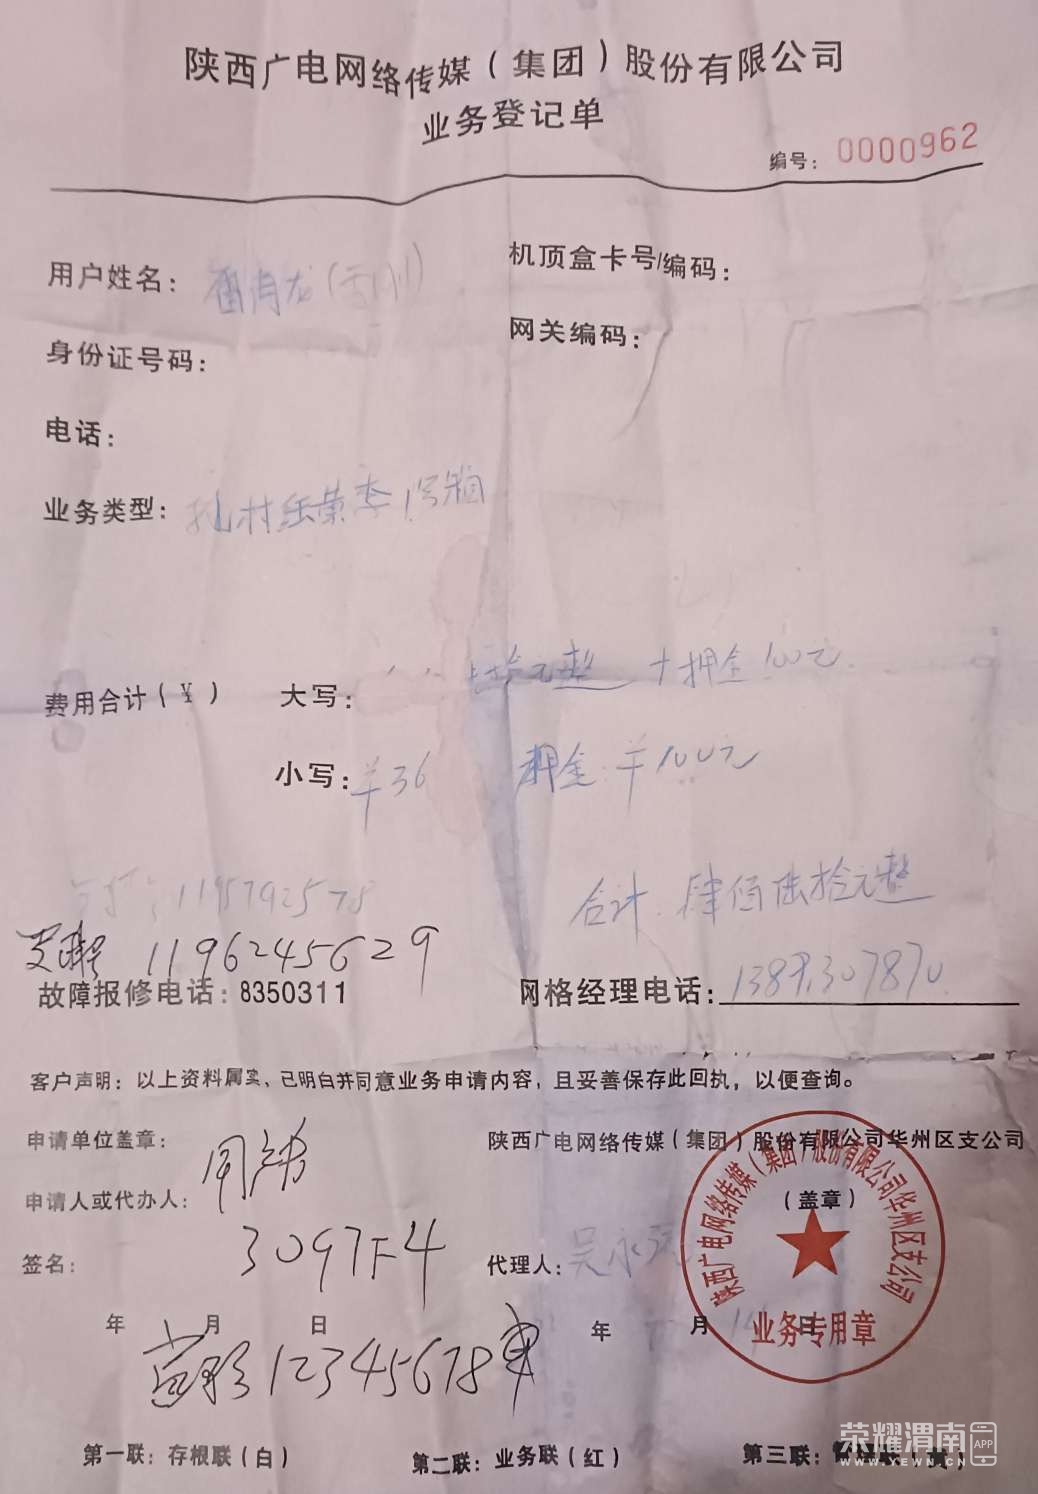 陕西广电网络传媒（集团）股份有限公司
业务登记单
编号：0000962
用户姓名：
机顶盒卡号/编码：
身份证号码：
网关编码：
电话：
业务类型：
费用合计（¥） 大写： 拾元整 + 押金100元.
小写：羊36 押金：羊100元
1195792578
合计：肆佰陆拾元整
11962445629
故障报修电话：8350311 网格经理电话：
客户声明：以上资料属实、已明白并同意业务申请内容，且妥善保存此回执，以便查询。
申请单位盖章：
陕西广电网络传媒（集团）股份有限公司华州区支公司
申请人或代办人：
（盖章）
签名： 3097F4
代理人：吴永
年 月 日
年 月 14 日
12345678
陕西广电网络传媒（集团）股份有限公司华州区支公司
业务专用章
第一联：存根联（白）
第二联：业务联（红）
第三联：
荣耀渭南 APP
WWW.YEWN.CN